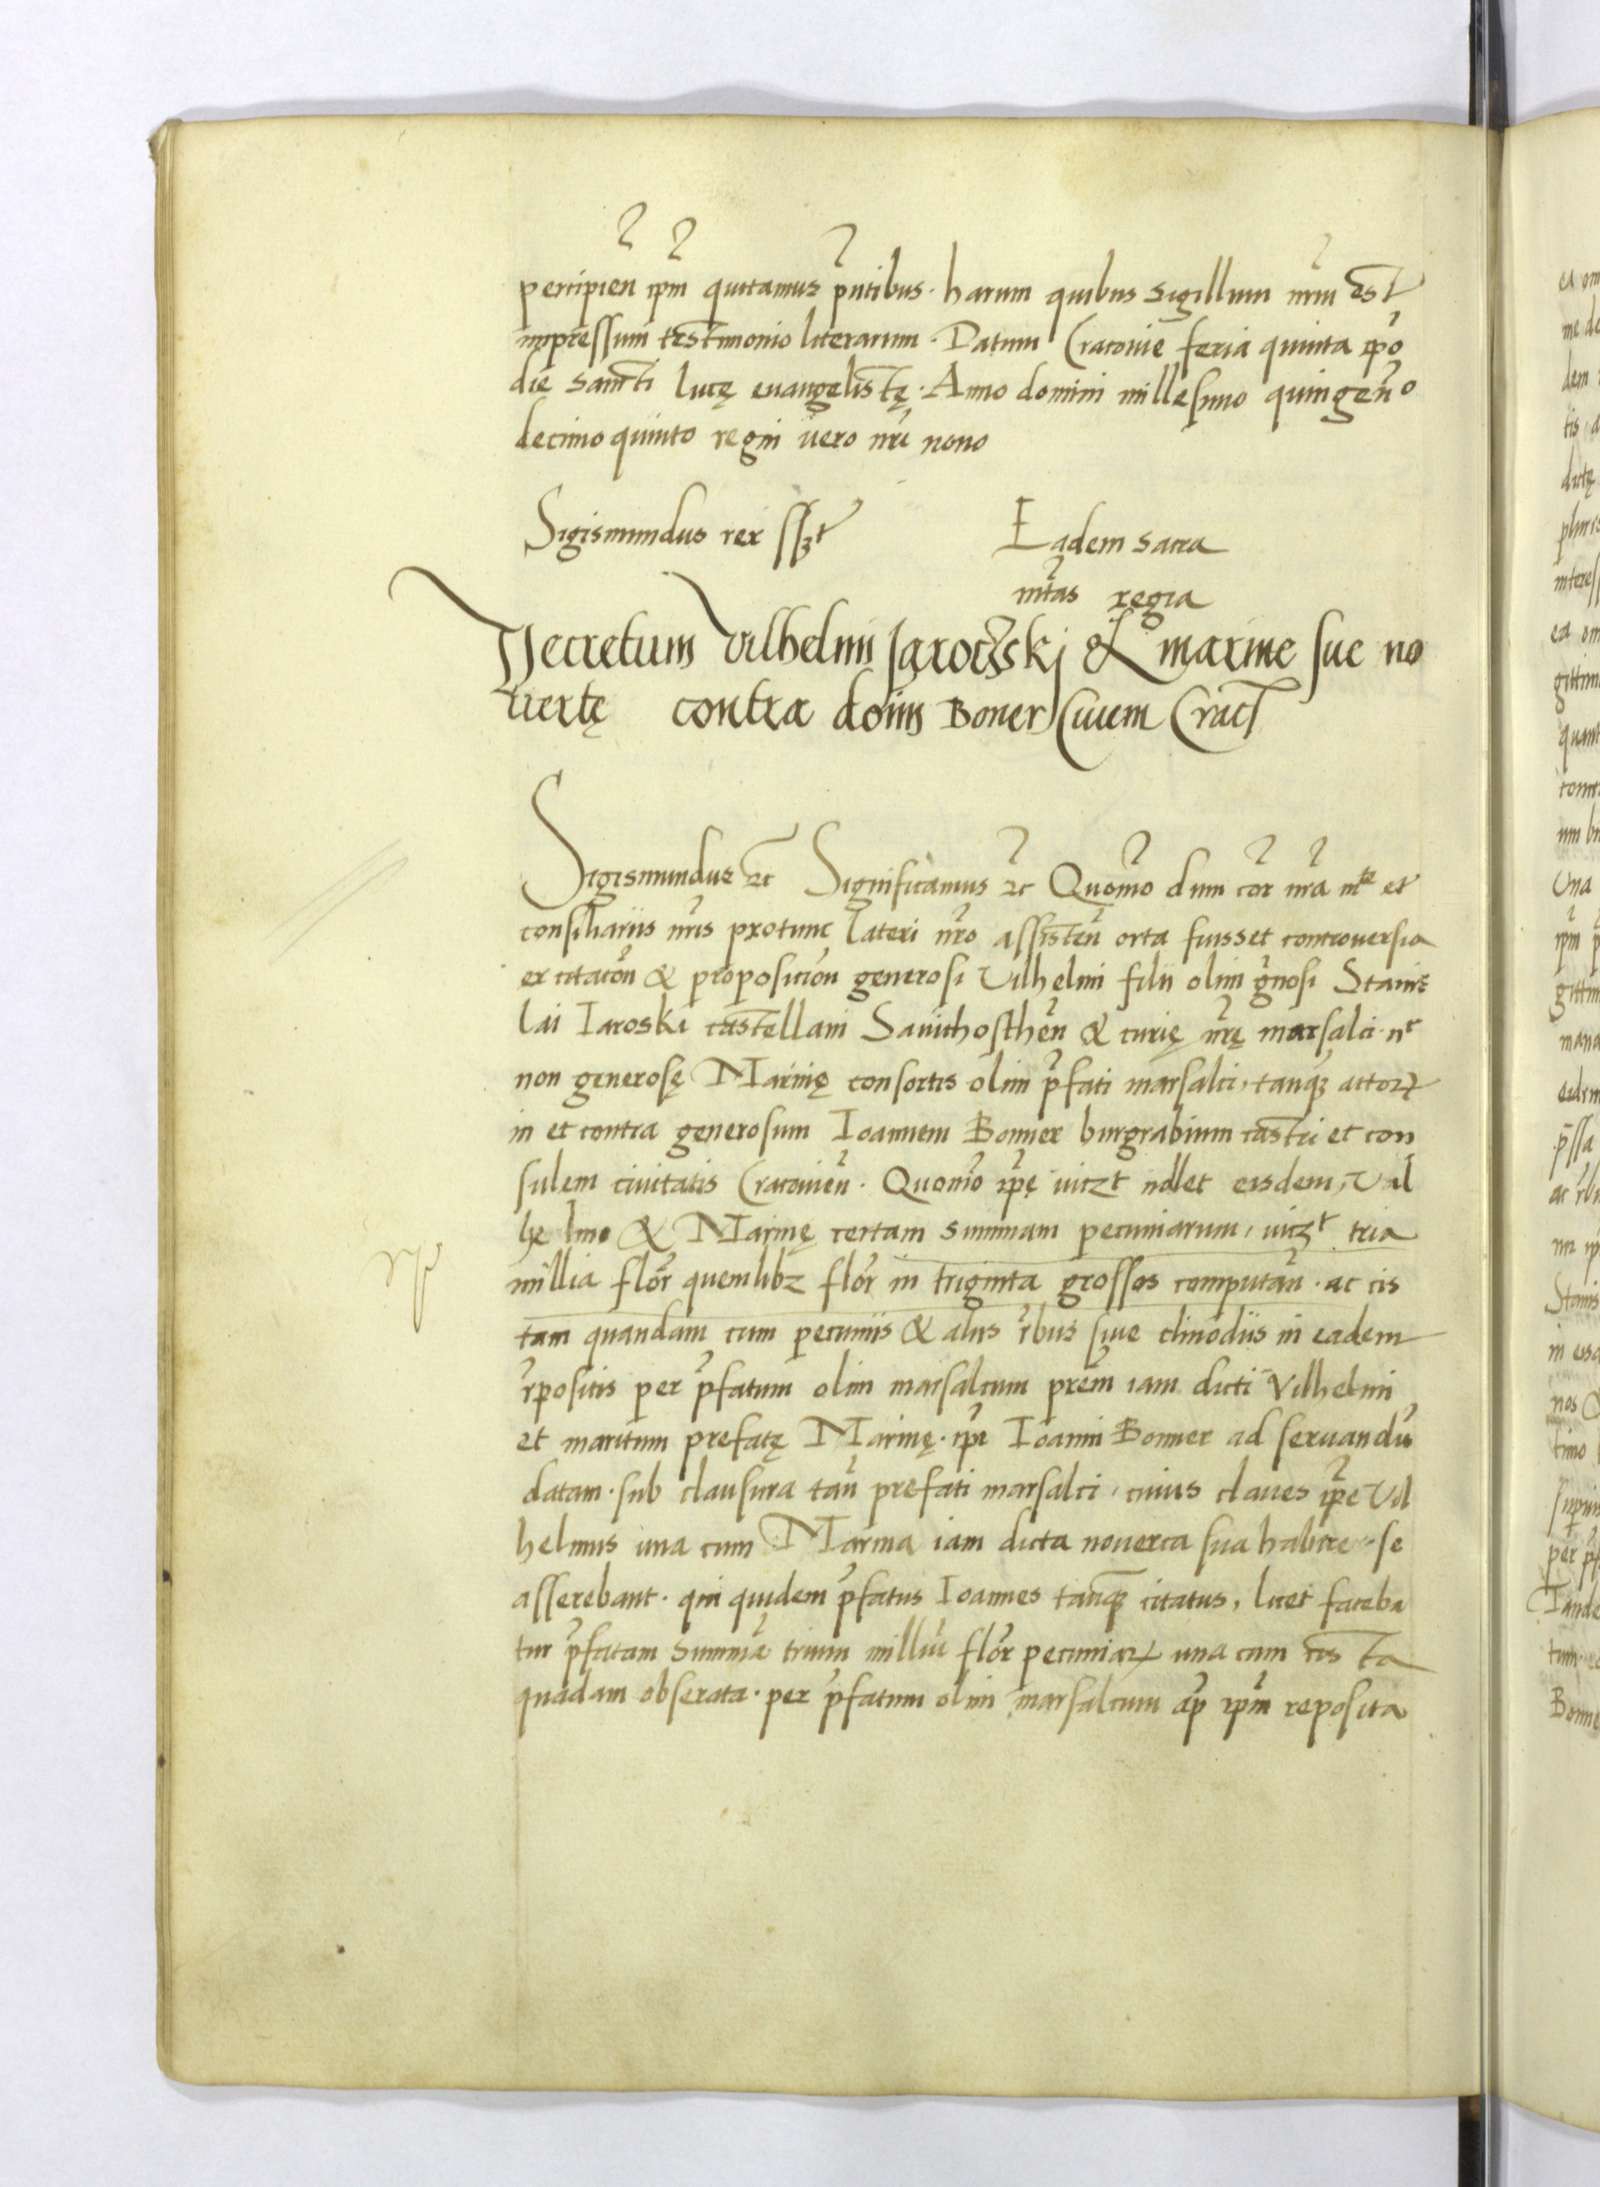 percipien̄ ip̄m quittamus pn̄tibus. harum quibus sigillum nr̄m est
impressum testimonio literarum. Datum Cracovie feria quinta ip̄o
die sancti lucę euangelistę. Anno domini millesimo quingen̄o
decimo quinto regni vero nr̄i nono
Sigismundus rex sszt
Eadem sacra
mt̄as regia
Decretum Vilhelmi Jaroczski & marine sue no
vercę contra dom̄ Boner Civem Crac̄
Sigismundus ꝛc Significamus ꝛc Quomō dum cor̄ nr̄a mte et
consiliariis nr̄is protunc lateri nr̄o assisten̄ orta fuisset controversia
ex citacōn & proposicion̄ generosi Vilhelmi filii olim gn̄osi Stanis
lai Iaroski castellani Sauichosthen̄ & curię nr̄ę marsalci. nc
non generosę Marinę consortis olim p̄fati marsalci, tanq̄ꝫ actoꝝ
in et contra generosum Ioannem Bonner burgrabium castri et con
sulem civitatis Cracovien̄. Quomō ip̄ę viczt nollet eisdem, Vil
helmo & Marinę certam summam pecuniarum, viczt tria
millia flor̄ quemlibꝫ flor̄ in triginta grossos computan̄. ac cis
tam quandam cum pecuniis & aliis r̄bus sive clinodiis in eadem
r̄positis per p̄fatum olim marsalcum pr̄em iam dicti Vilhelmi
et maritum prefatę Marinę. ip̄i Ioanni Bonner ad servandū
datam. sub clausura tan̄ prefati marsalci, cuius claves ip̄e Vil
helmus una cum Marina iam dicta noverca sua habere se
asserebant. qui quidem p̄fatus Ioannes tanq̄ꝫ citatus, licet fateba
tur p̄fatam summā trium milliū flor̄ pecuniaꝝ una cum cis ta
quadam obserata. per p̄fatum olim marsalcum ap̄ ip̄m reposita